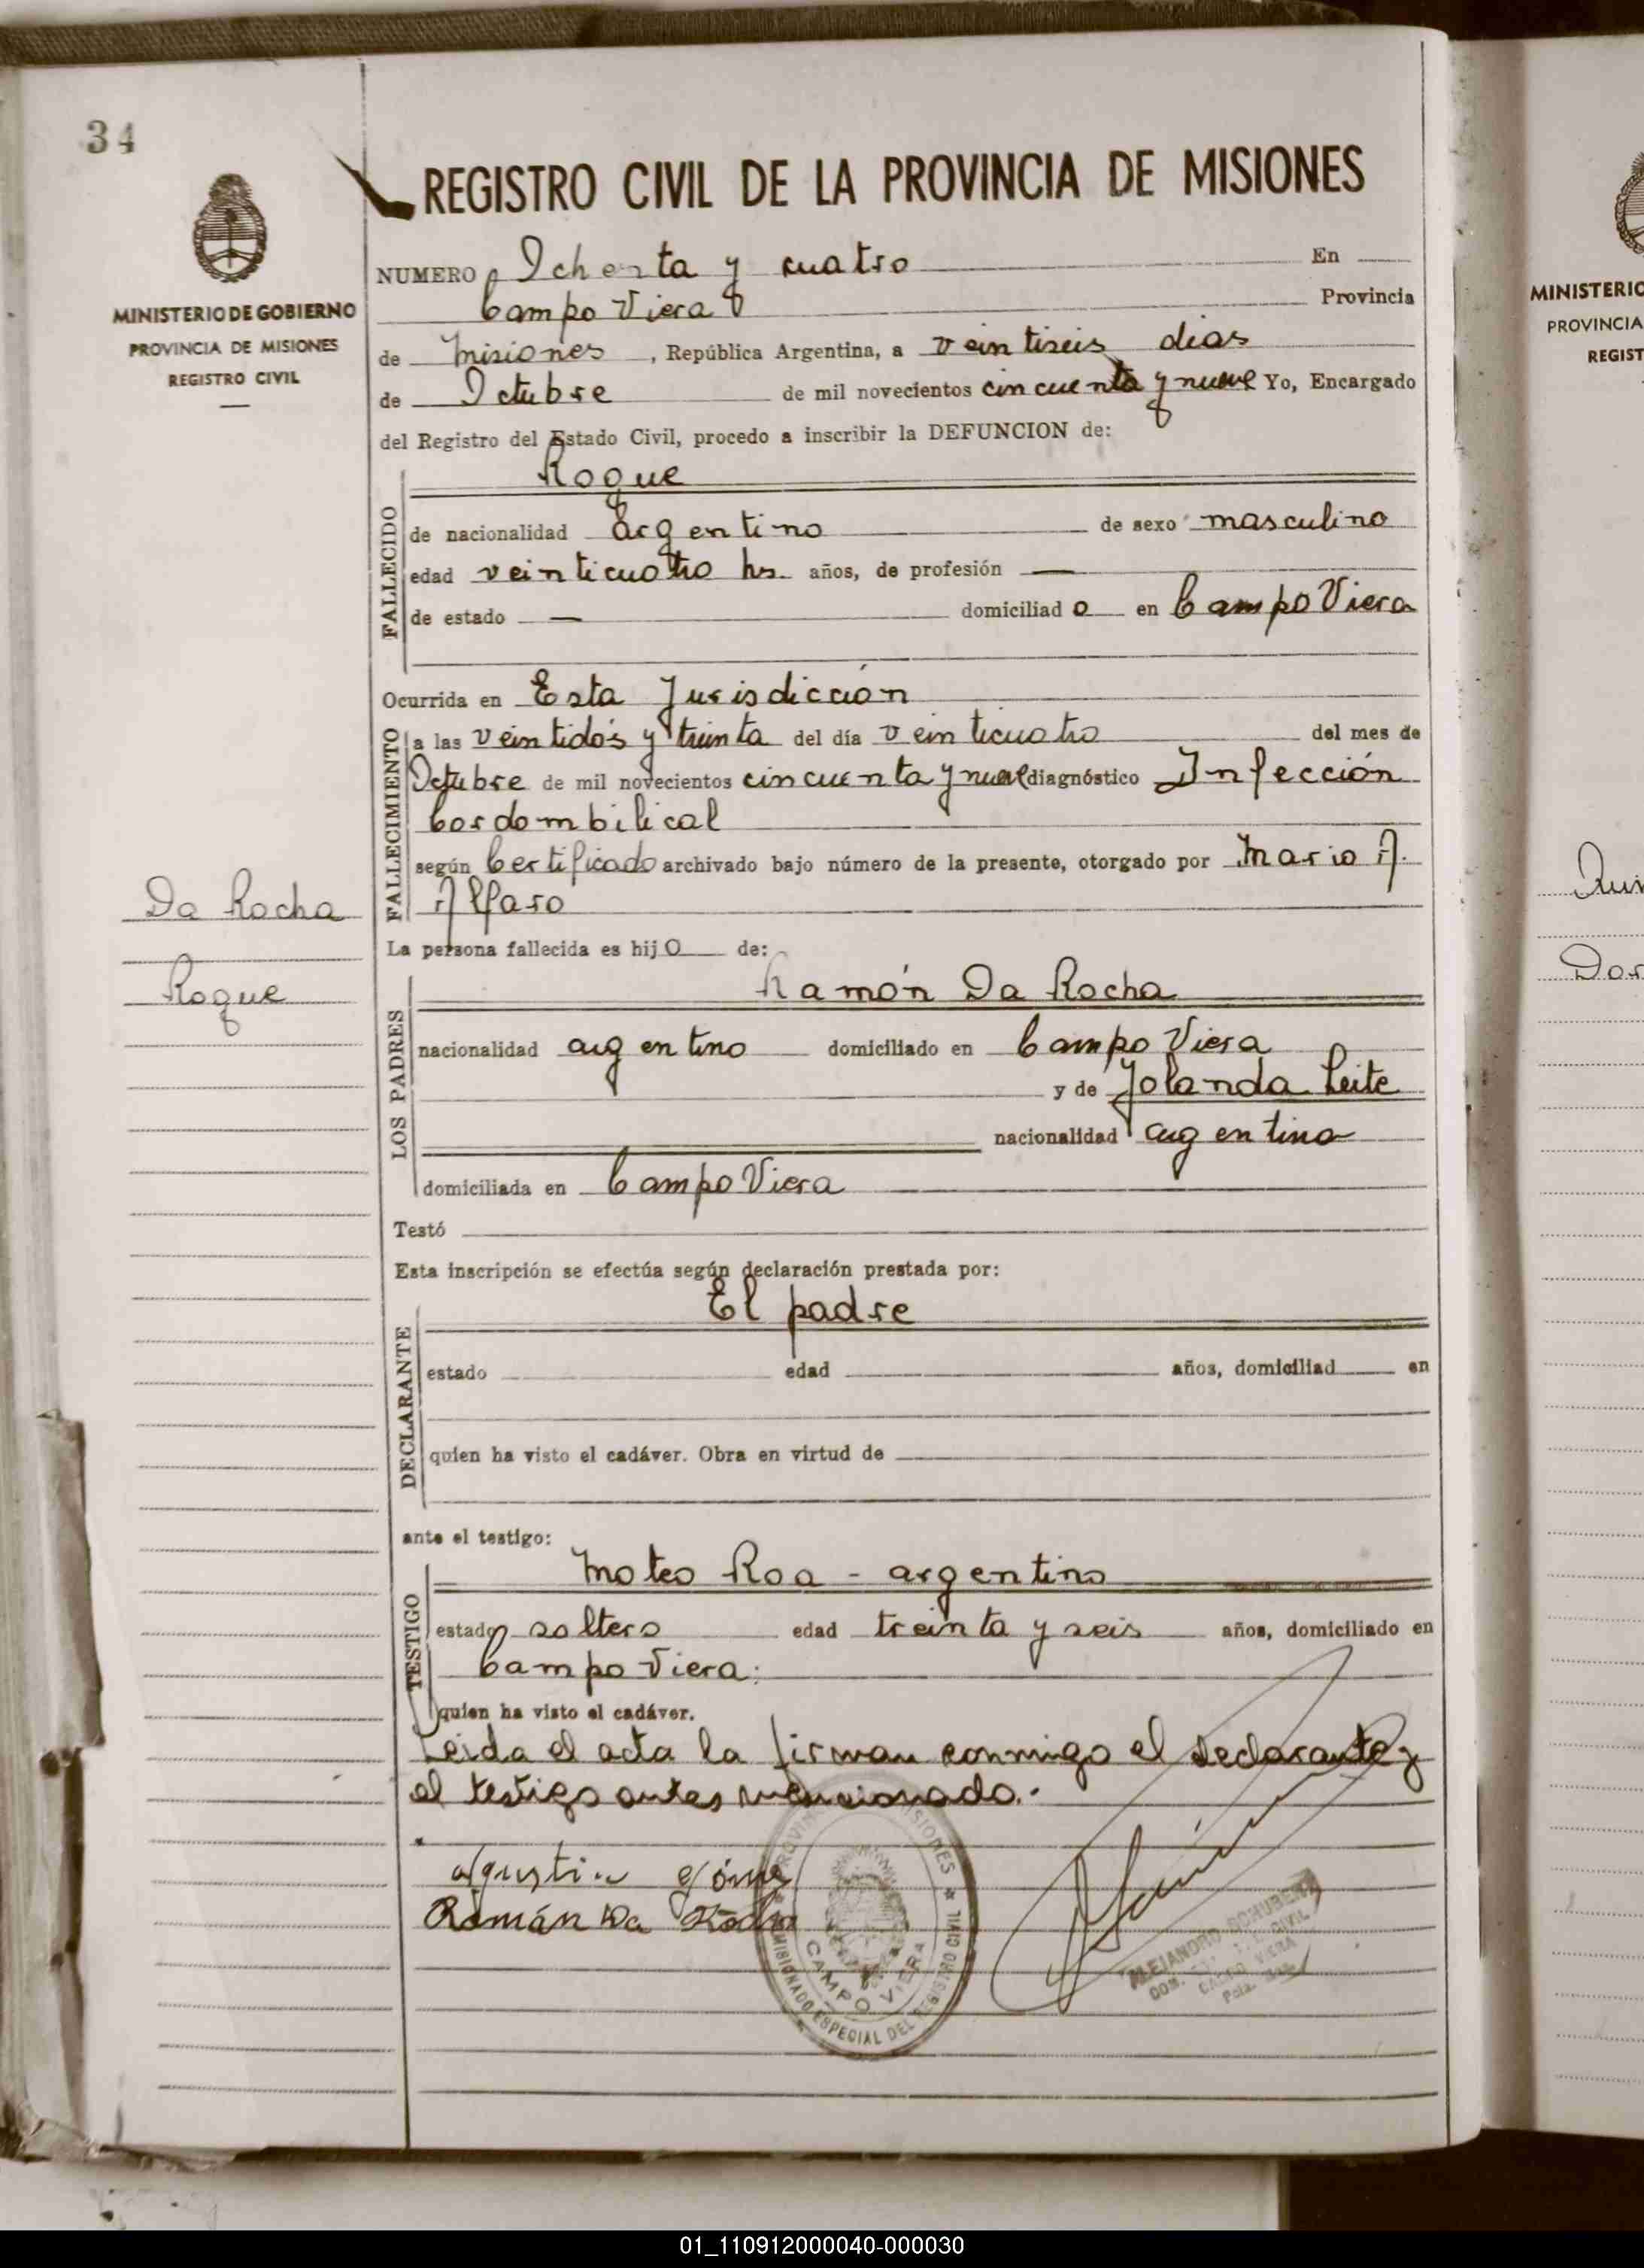 34
MINISTERIO DE GOBIERNO
PROVINCIA DE MISIONES
REGISTRO CIVIL
REGISTRO CIVIL DE LA PROVINCIA DE MISIONES
NUMERO Ochenta y cuatro En
Campo Viera Provincia
de Misiones, República Argentina, a veintiseis dias
de Octubre de mil novecientos cincuenta y nueve Yo, Encargado
del Registro del Estado Civil, procedo a inscribir la DEFUNCION de:
Roque
FALLECIDO
de nacionalidad Argentino de sexo masculino
edad veinticuatro hs. años, de profesión —
de estado — domiciliado en Campo Viera
Ocurrida en Esta Jurisdicción
FALLECIMIENTO
a las veintidós y treinta del día veinticuatro del mes de
Octubre de mil novecientos cincuenta y nueve diagnóstico Infección
Cordombilical
según Certificado archivado bajo número de la presente, otorgado por Mario A.
Alfaro
Da Rocha
Roque
La persona fallecida es hijo de:
Ramón Da Rocha
LOS PADRES
nacionalidad argentino domiciliado en Campo Viera
y de Jolanda Leite
nacionalidad argentina
domiciliada en Campo Viera
Testó
Esta inscripción se efectúa según declaración prestada por:
El padre
DECLARANTE
estado edad años, domiciliad en
quien ha visto el cadáver. Obra en virtud de
ante el testigo:
Mateo Roa - argentino
TESTIGO
estado soltero edad treinta y seis años, domiciliado en
Campo Viera.
quien ha visto el cadáver.
Leida el acta la firman conmigo el declarante y
el testigo antes mencionado.-
Agustin
Ramón Da Rocha
PROVINCIA MISIONES
COMISIONADO ESPECIAL DEL REGISTRO CIVIL
CAMPO VIERA
ALEJANDRO SCHUBERT
CIVIL
CAMPO VIERA
MINISTERIO
PROVINCIA
REGIST
01_110912000040-000030